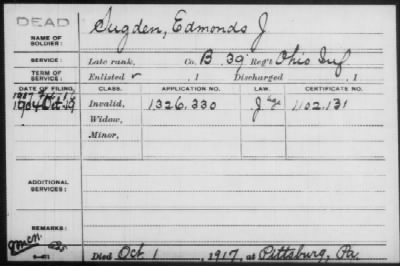 DEAD
NAME OF SOLDIER: Sugden, Edmonds J
SERVICE: Late rank, Co. B 39 Reg't Ohio Inf
TERM OF SERVICE: Enlisted , 1 Discharged , 1
DATE OF FILING. CLASS. APPLICATION NO. LAW. CERTIFICATE NO.
1904 Oct 19 Invalid, 1,326,330 J 1102,131
Widow,
Minor,
ADDITIONAL SERVICES:
REMARKS:
Died Oct 1 , 1917, at Pittsburg, Pa.